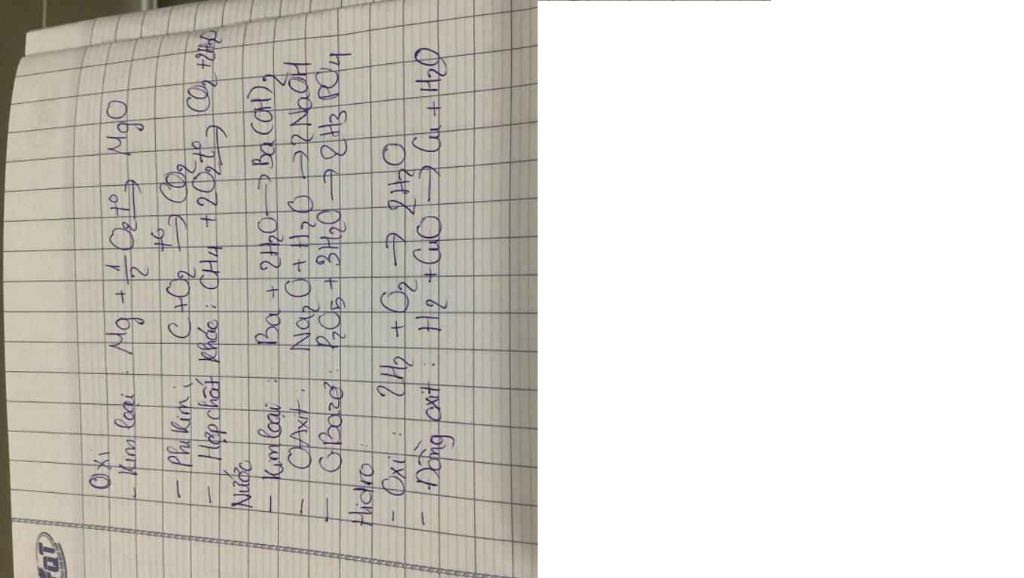 Oxi
- Kim loại : Mg + 1/2 O2 t° → MgO
- Phi Kim : C + O2 t° → CO2
- Hợp chất khác : CH4 + 2O2 t° → CO2 + 2H2O
Nước
- Kim loại : Ba + 2H2O → Ba(OH)2
- OAxit : Na2O + H2O → 2NaOH
- OBazơ : P2O5 + 3H2O → 2H3PO4
Hidro :
- Oxi : 2H2 + O2 → 2H2O
- Đồng oxit : H2 + CuO → Cu + H2O